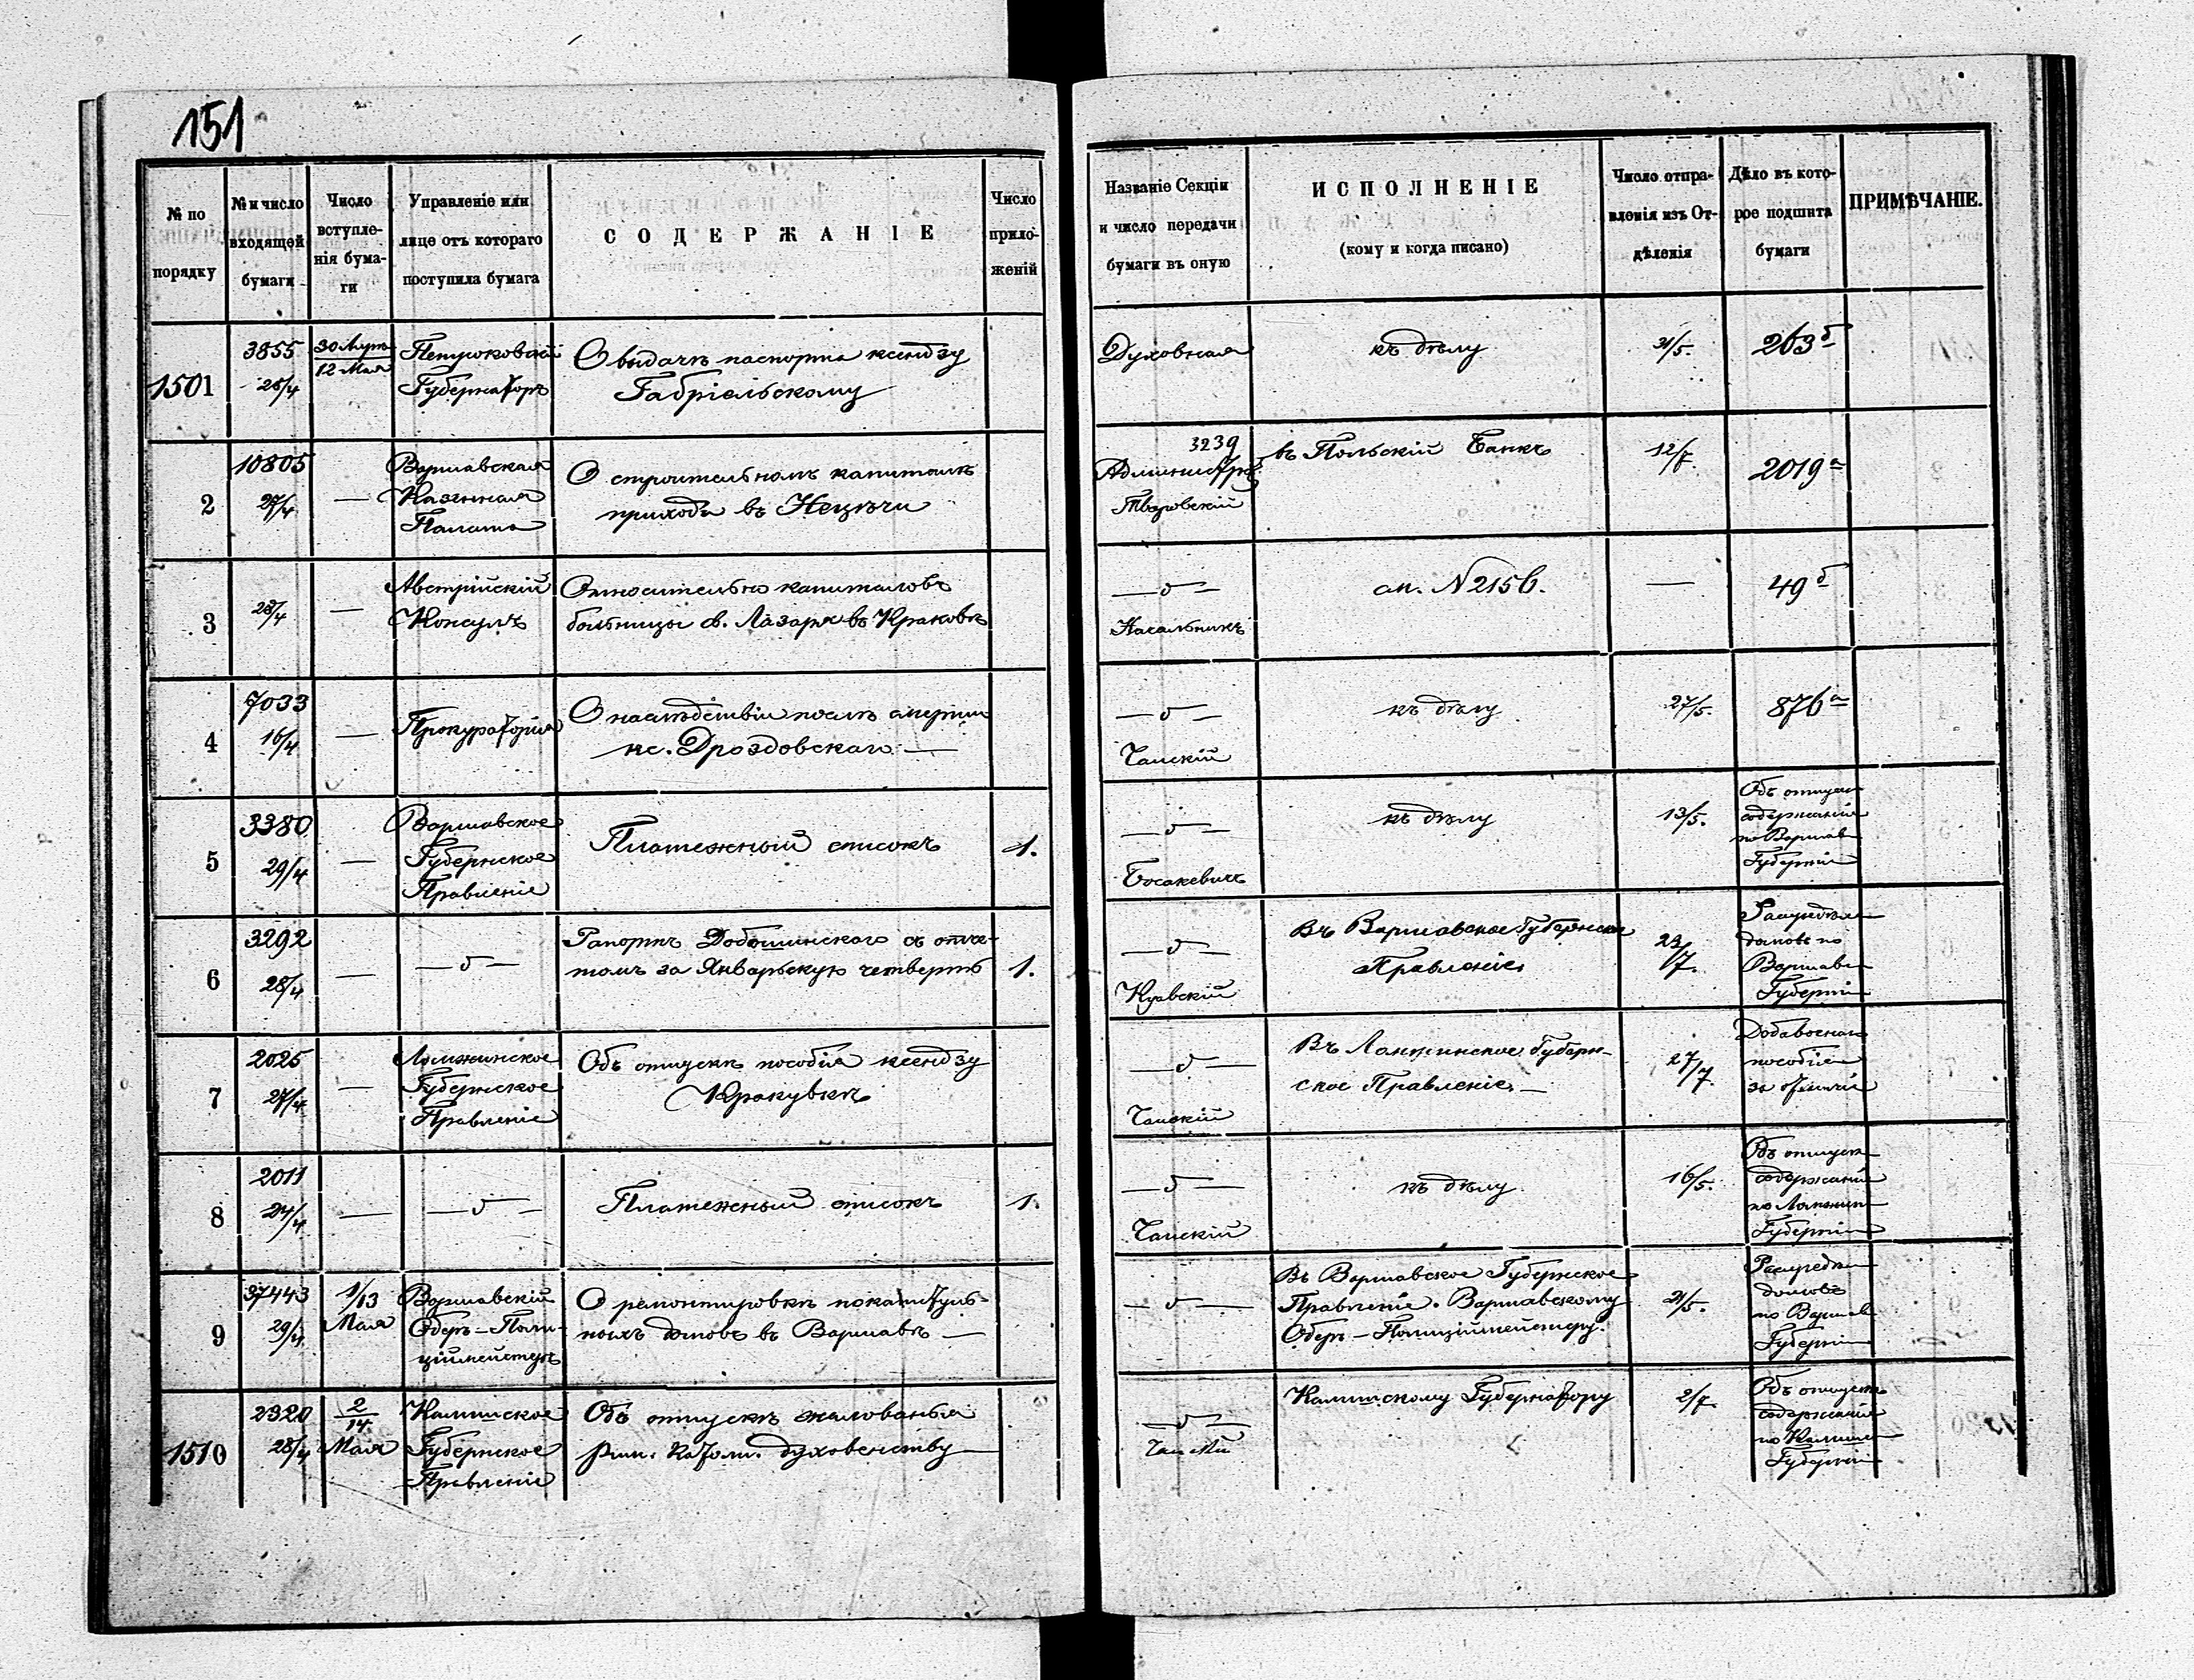 151
№ по порядку
№ и число входящей бумаги
Число вступле-нія бума-ги
Управленіе или лице отъ котораго поступила бумага
СОДЕРЖАНІЕ
Число прило-женій
Названіе Секціи и число передачи бумаги въ оную
ИСПОЛНЕНІЕ
(кому и когда писано)
Число отпра-вленія изъ От-дѣленія
Дѣло въ кото-рое подшита бумаги
ПРИМѢЧАНІЕ.
1501
3855
12 Мая
Губернаторъ
О выдачѣ паспорта ксендзу
Габріельскому
Духовная
къ дѣлу
31/5.
263 б
2
10805
27/4
—
Варшавская
Казенная
Палата
О строительномъ капиталѣ
прихода въ
3239
въ Польскій Банкъ
12/7.
2019 а
3
28/4
—
Австрійскій
Консулъ
Относительно капиталовъ
больницы св. Лазаря въ Краковѣ
Начальникъ
см. N 2156.
—
49 б
4
7033
16/4
—
Прокураторія
О наслѣдствіи послѣ смерти
кс. Дроздовскаго —
Чамскій
къ дѣлу
27/5.
876 а
5
3380
29/4
—
Варшавское
Губернское
Правленіе
Платежный списокъ
1.
къ дѣлу
13/5.
Объ отпускѣ
содержанія
по Варшав
Губерніи
6
3292
28/4
—
Рапортъ Добошинскаго съ отче-
томъ за Январьскую четверть
1.
Куявскій
Въ Варшавское Губернское
Правленіе
23/7.
домовъ по
Варшав
Губерніи
7
2025
27/4
—
Ломжинское
Губернское
Правленіе
Объ отпускѣ пособія ксендзу
Чамскій
Въ Ломжинское Губерн-
ское Правленіе —
27/7.
пособіе
8
2011
24/4
—
Платежный списокъ
1.
Чамскій
къ дѣлу
16/5.
Объ отпускѣ
содержанія
по Ломжин
Губерніи
9
37443
29/4
1/13
Мая
Варшавскій
Оберъ-Поли-
ціймейстеръ
О ремонтировкѣ покапитуль-
ныхъ домовъ въ Варшавѣ —
Въ Варшавское Губернское
Правленіе. Варшавскому
Оберъ-Полиціймейстеру.
21/5.
домовъ
по Варшав
Губерніи
1510
2320
28/4
2/14
Мая
Калишское
Губернское
Правленіе
Объ отпускѣ жалованья
рим. катол. духовенству —
Чамскій
Калишскому Губернатору
2/7.
Объ отпускѣ
содержанія
по Калиш
Губерніи